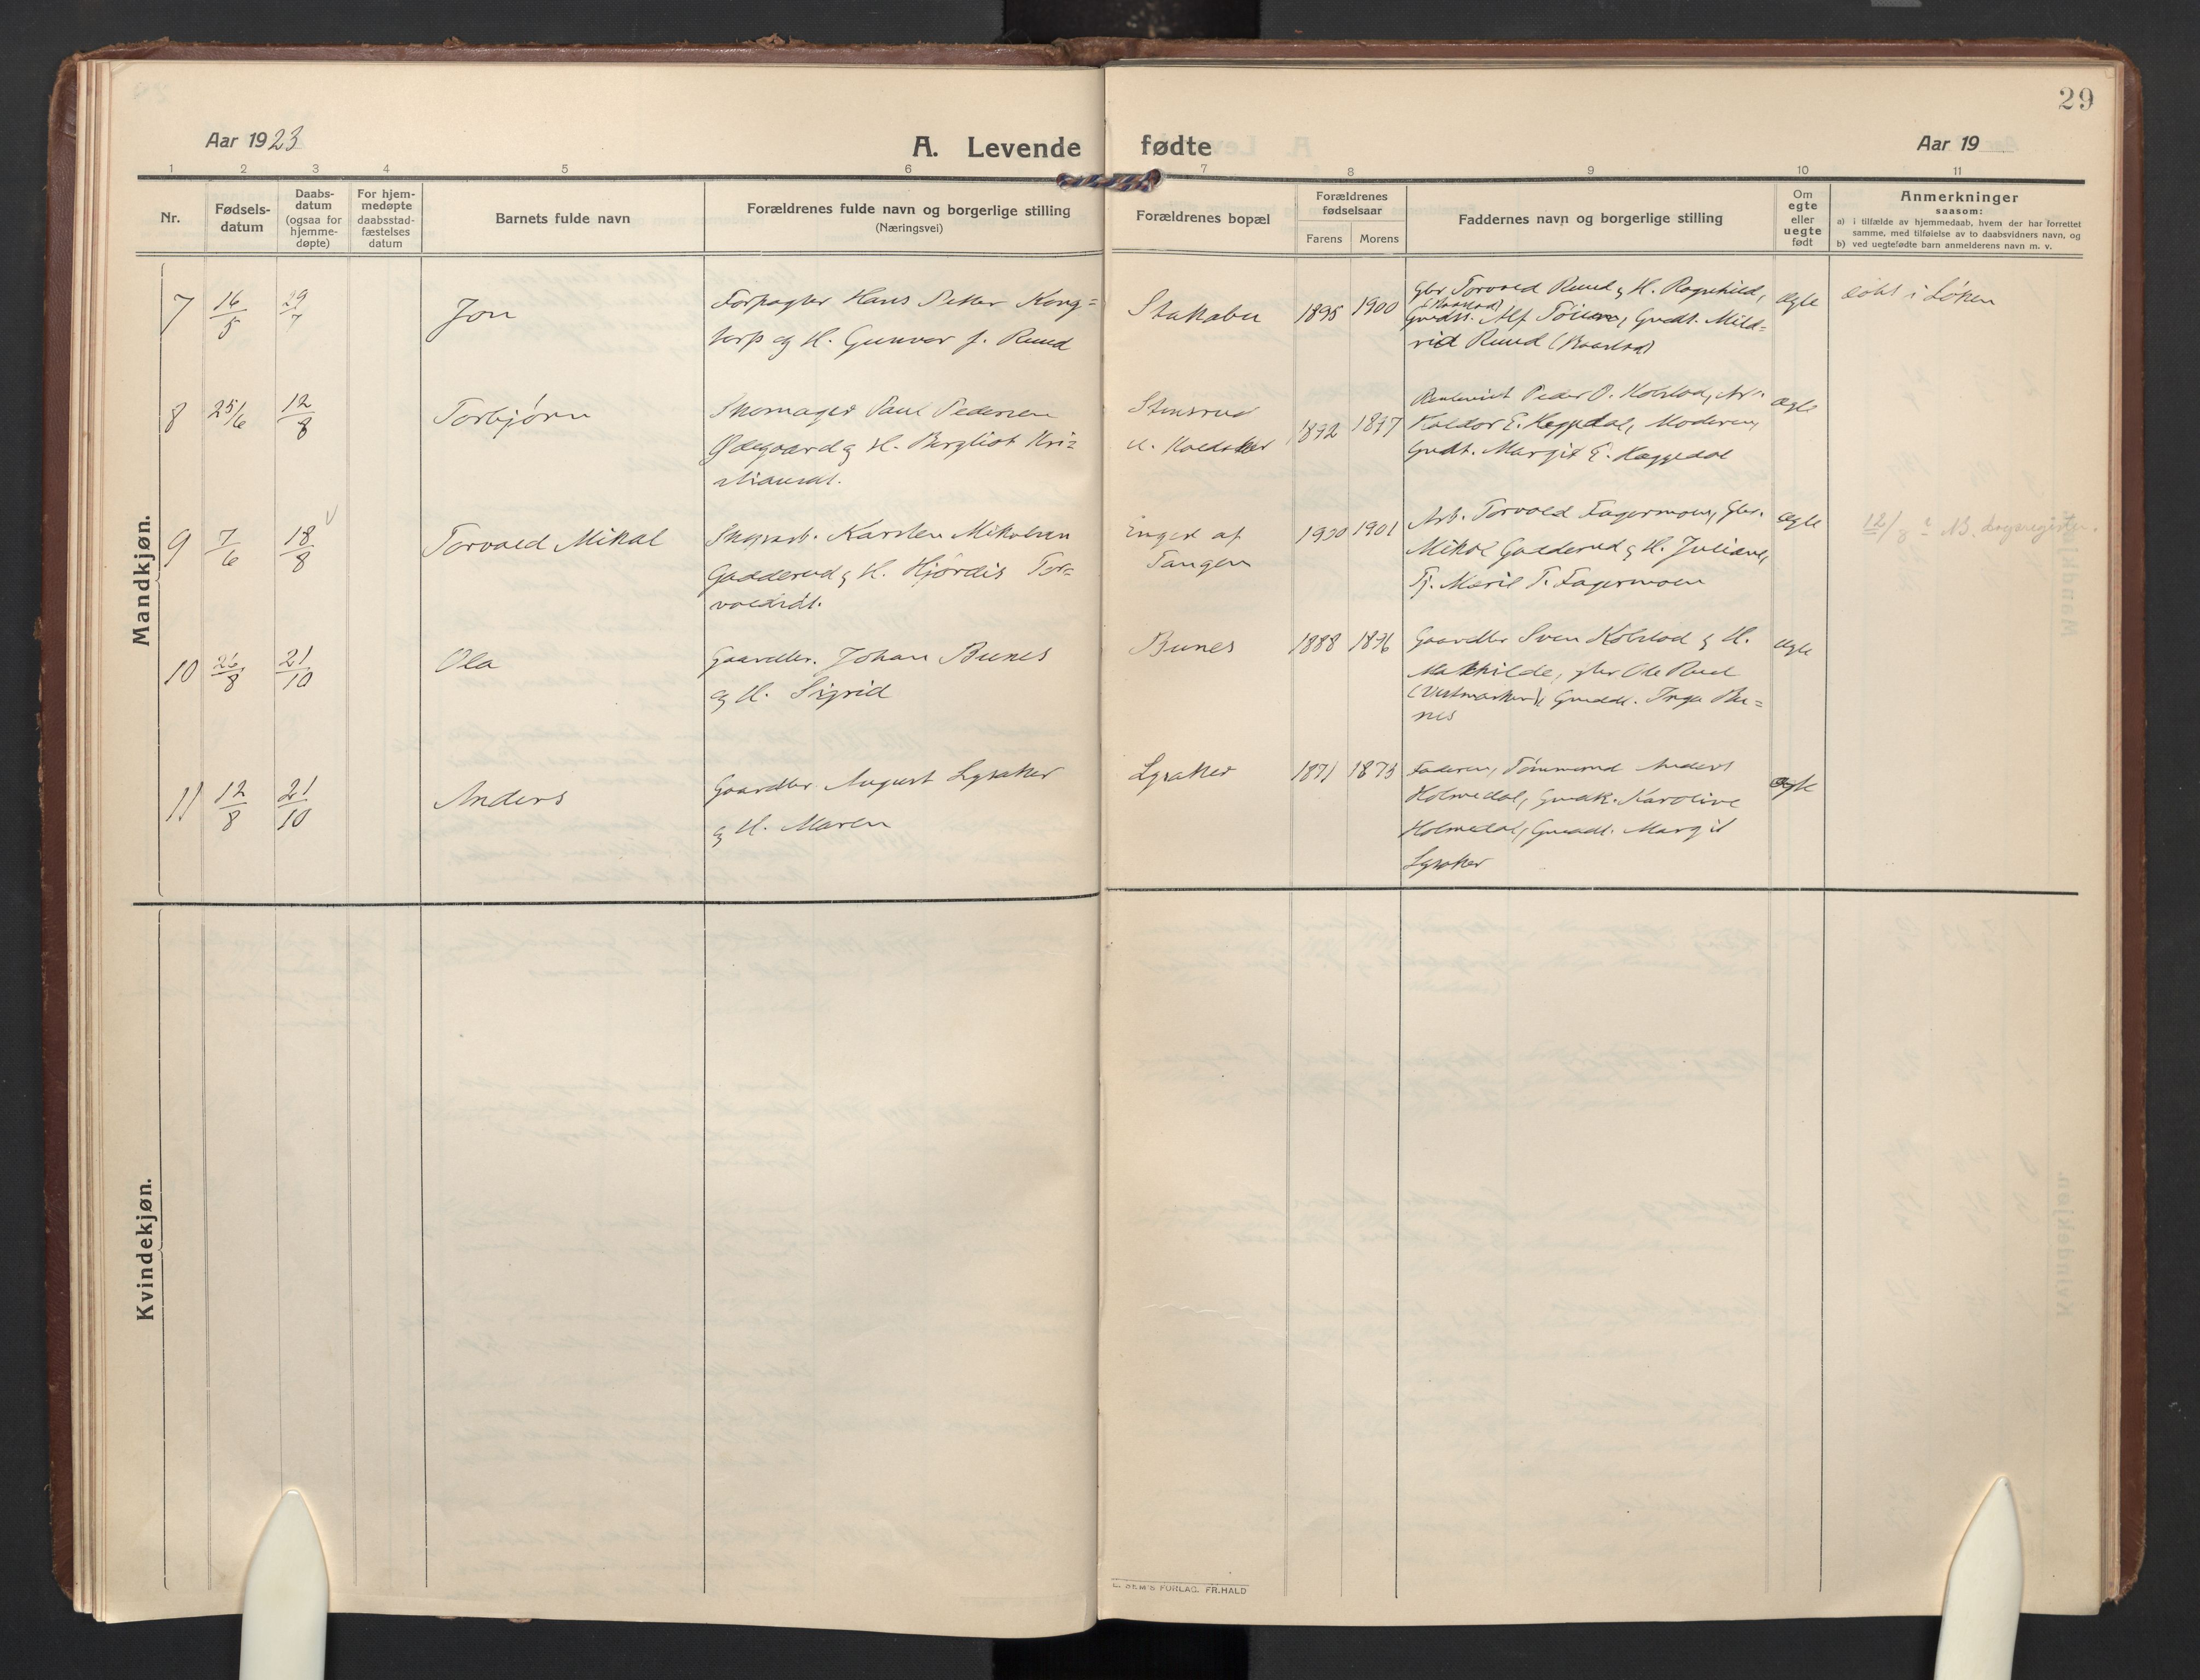 29
Aar 1923
A. Levende fødte
Aar 19
1 2 3 4 5 6 7 8 9 10 11
Nr.
Fødsels-
datum
Daabs-
datum
(ogsaa for
hjemme-
døpte)
For hjem-
medøpte
daabsstad-
fæstelses
datum
Barnets fulde navn
Forældrenes fulde navn og borgerlige stilling
(Næringsvei)
Forældrenes bopæl
Forældrenes
fødselsaar
Farens Morens
Faddernes navn og borgerlige stilling
Om
egte
eller
uegte
født
Anmerkninger
saasom:
a) i tilfælde av hjemmedaab, hvem der har forrettet
samme, med tilføielse av to daabsvidners navn, og
b) ved uegtefødte barn anmelderens navn m. v.
Mandkjøn.
7 16/5 29/7 Jon
Forpagter Hans Petter Kong=
torp og H. Gunvor f. Ruud
Stakabu 1895 1900
Gbr Torvald Ruud & H. Ragnhild,
Alf Gmdt. Mild=
rid Ruud
ægte
døbt i Løken
8 25/6 12/8 Torbjørn
Skomager Paul Pedersen
Ødegaard & H. Bergliot Kri=
stiansdt.
Stensrud
1892 1897
Peder O. Kolstad,
E. Moderen,
Gmdt. Margit E. Haggedal
ægte
9 7/6 18/8 Torvald Mikal
Karsten Mikalsen
Gadderud & H. Hjördis Tor=
valdsdt.
Inger af
Tangen
1900 1901
Arb. Torvald Fagermoen, Gbr.
Mikal Gadderud & H. Juliane,
Tj. Marit T. Fagermoen
ægte
12/8 NB. dagsregister.
10 26/8 21/10 Ola
Gaardbr. Johan Bunes
og H. Sigrid
Bunes 1888 1896
Gaardbr Sven Kolstad & H.
Mathilde, gbr Ole Rud
(Vestmarken), Gmdt. Inga Bu=
nes
ægte
11 12/8 21/10 Anders
Gaardbr. August Lysaker
& H. Maren
Lysaker 1871 1873
Faderen, Tømmermd Anders
Holmedal, Gmdk. Karoline
Holmedal, Gmdt. Margit
Lysaker
ægte
Kvindekjøn.
E. SEM'S FORLAG. FR. HALD